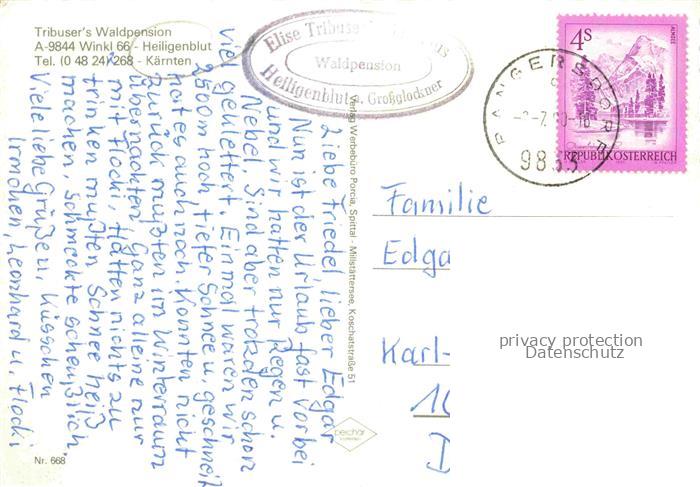 Tribuser's Waldpension
A-9844 Winkl 66 - Heiligenblut
Tel. (0 48 24) 268 - Kärnten
Elise Tribuser
Waldpension
Heiligenblut a. Großglockner
4S
ALMSEE
REPUBLIK ÖSTERREICH
RANGERSDORF
9833
Liebe Friedel lieber Edgar
Nun ist der Urlaub fast vorbei
und wir hatten nur Regen u.
Nebel. Sind aber trotzden schon
viel geklettert. Einmal waren wir
2500m hoch tiefer Schnee u. geschneit
hat es auch noch. Konnten nicht
zurück mußten im Winterraum
übernachten Ganz alleine nur
mit Flocki. Hatten nichts zu
trinken mußten Schnee heiß
machen, schmeckte scheußlich.
Viele liebe Grüße u. Küsschen
Irmchen, Leonhard u. Flocki
Verlag Werbebüro Porcia, Spittal - Millstättersee, Koschatstraße 51
Familie
Edga
Karl-
10
D
privacy protection
Datenschutz
Nr. 668